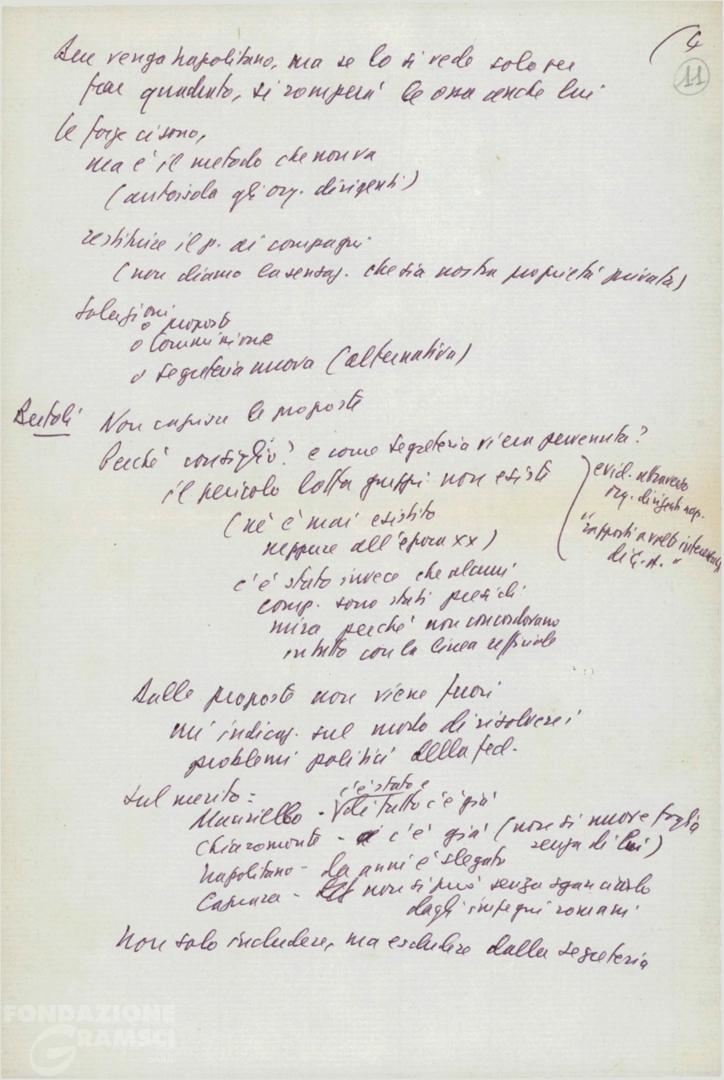 (4
11
Ben venga Napolitano, ma se lo si vede solo per
fare quadrato, si romperà le ossa anche lui
le forze ci sono,
ma è il metodo che non va
(autoisola gli org. dirigenti)
restituire il p. ai compagni
(non diamo la sensaz. che sia nostra proprietà privata)
Soluzioni
o proposte
o Commissione
o segreteria nuova (alternativa)
Bertoli Non capisce le proposte
Perché consiglio? e come segreteria vi era pervenuta?
il pericolo lotta gruppi non esiste
(né è mai esistito
neppure all'epoca XX)
evid. attraverso
org. dirigenti nap.
"rapporti a volte
di
c'è stato invece che alcuni
comp. sono stati presi di
mira perché non concordavano
in tutto con la linea ufficiale
Dalle proposte non viene fuori
un'indicaz. sul modo di risolvere i
problemi politici della fed.
Sul merito:
c'è stato e
- di tutto c'è già
Chiaromonte - c'è già (non si muove foglia
senza di lui)
Napolitano - da anni è slegato
Caprara - non si può senza sganciarlo
dagli impegni romani
Non solo includere, ma escludere dalla segreteria
FONDAZIONE
GRAMSCI